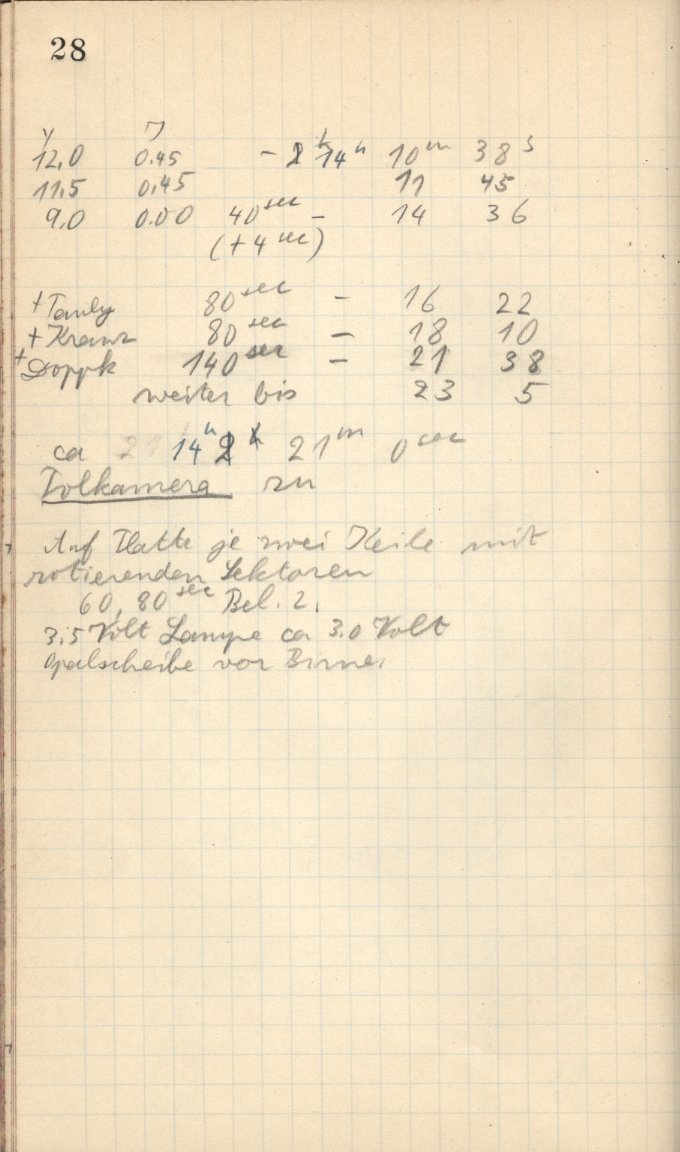 28
12,0 0.45 – 14h 10m 38s
11,5 0,45 11 45
9,0 0.00 40sec – 14 36
(+4 sec)
80sec – 16 22
+ Kranz 80sec – 18 10
+ Doppk 140sec – 21 38
weiter bis 23 5
ca 14h 21m 0sec
Polkamera zu
Auf Platte je zwei Keile mit
rotierenden Sektoren
60, 80sec Bel. 2.
3,5 Volt Lampe ca 3.0 Volt
Opalscheibe vor Birne.